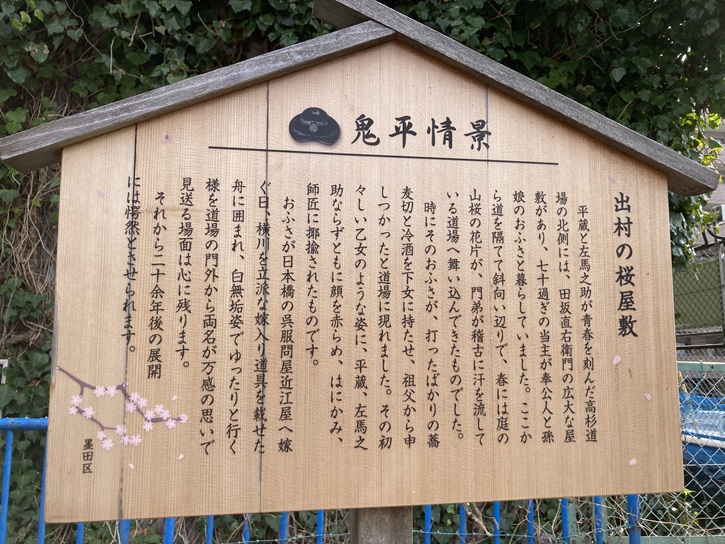 鬼平情景
出村の桜屋敷
平蔵と左馬之助が青春を刻んだ高杉道
場の北側には、田坂直右衛門の広大な屋
敷があり、七十過ぎの当主が奉公人と孫
娘のおふさと暮らしていました。ここか
ら道を隔てて斜向い辺りで、春には庭の
山桜の花片が、門弟が稽古に汗を流して
いる道場へ舞い込んできたものでした。
時にそのおふさが、打ったばかりの蕎
麦切と冷酒を下女に持たせ、祖父から申
しつかったと道場に現れました。その初
々しい乙女のような姿に、平蔵、左馬之
助ならずともに顔を赤らめ、はにかみ、
師匠に揶揄されたものです。
おふさが日本橋の呉服問屋近江屋へ嫁
ぐ日、横川を立派な嫁入り道具を載せた
舟に囲まれ、白無垢姿でゆったりと行く
様を道場の門外から両名が万感の思いで
見送る場面は心に残ります。
それから二十余年後の展開
には愕然とさせられます。
墨田区